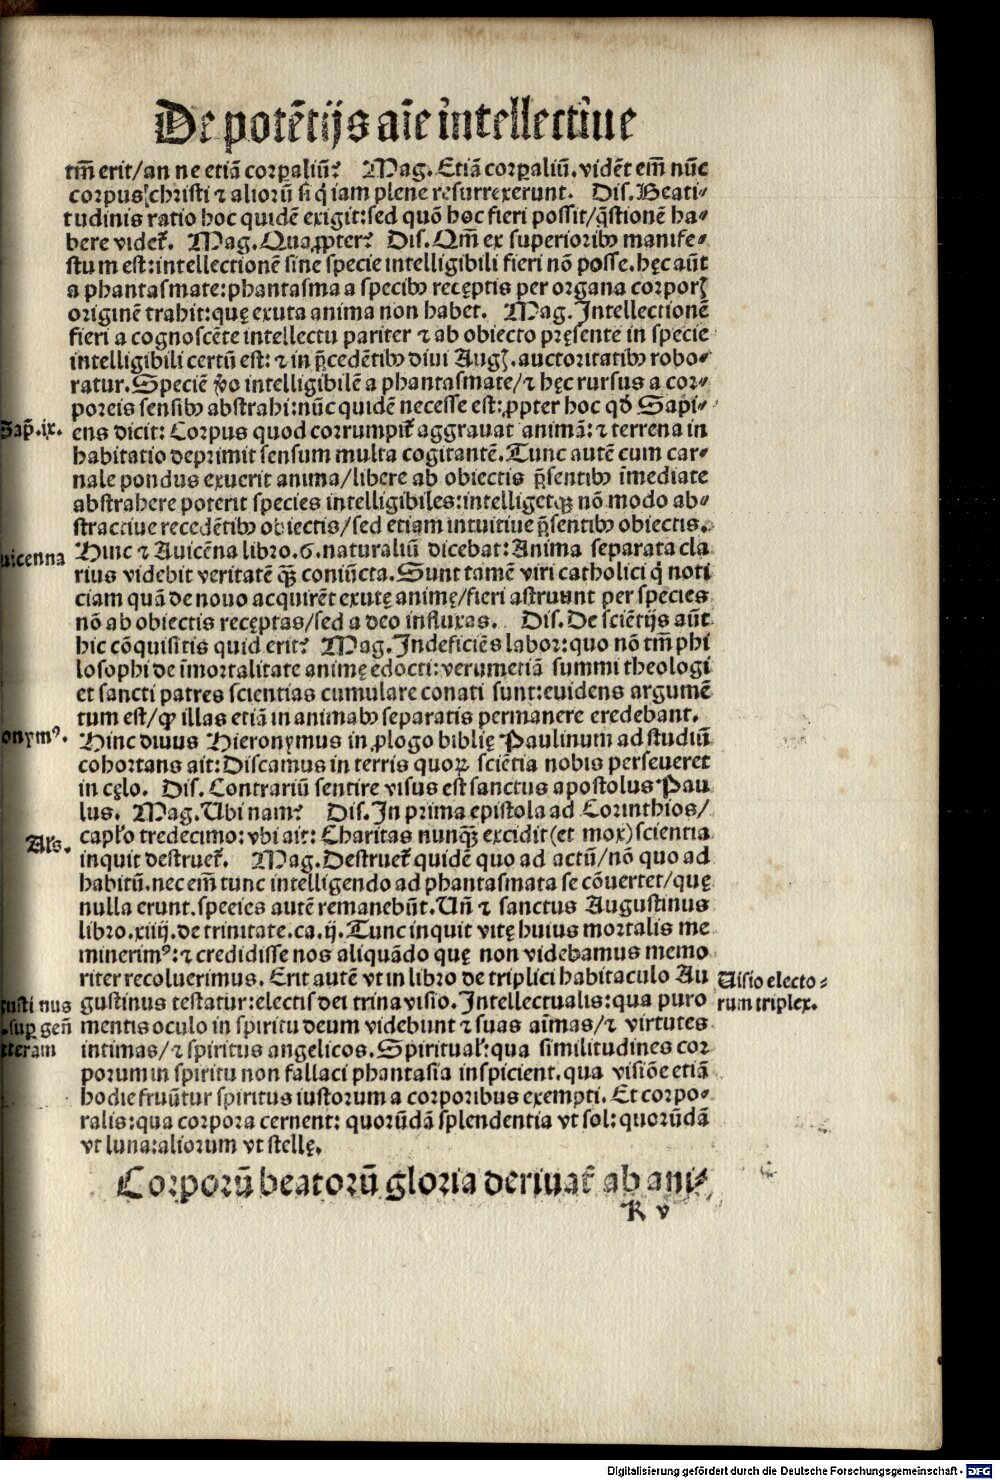 De potẽtijs aĩe ĩtellectiue
tm̃ erit/an ne etiã corꝑaliũ? Mag. Etiã corꝑaliũ. vidẽt em̃ nũc
corpus christi ⁊ aliorũ si q̃ iam plene resurrexerunt. Dis. Beati⸗
tudinis ratio hoc quidẽ exigit: sed quõ hoc fieri possit/q̃stionẽ ha⸗
bere videt᷑. Mag. Quaꝓpter? Dis. Qm̃ ex superiorib⁹ manife⸗
stum est: intellectionẽ sine specie intelligibili fieri nõ posse. hęc aũt
a phantasmate: phantasma a specib⁹ recęptis per organa corporꝫ
originẽ trahit: quę exuta anima non habet. Mag. Intellectionẽ
fieri a cognoscẽte intellectu pariter ⁊ ab obiecto pręsente in specie
intelligibili certũ est: ⁊ in p̃cedẽtib⁹ diui Augꝫ. auctoritatib⁹ robo⸗
ratur. Speciẽ ṽo intelligibilẽ a phantasmate/⁊ hęc rursus a cor⸗
poreis sensib⁹ abstrahi: nũc quidẽ necesse est: ꝓpter hoc qđ Sapi⸗
Sap̃. ix.
ens dicit: Corpus quod corrumpit᷑ aggrauat animã: ⁊ terrena in
habitatio deprimit sensum multa cogitantẽ. Tunc autẽ cum car⸗
nale pondus exuerit anima/libere ab obiectis p̃sentib⁹ ĩmediate
abstrahere poterit species intelligibiles: intelligetqꝫ nõ modo ab⸗
stractiue recedẽtib⁹ obiectis/sed etiam intuitiue p̃sentib⁹ obiectis.
uicenna
Hinc ⁊ Auicẽna libro. 6. naturaliũ dicebat: Anima separata cla
rius videbit veritatẽ qꝫ̃ coniũcta. Sunt tamẽ viri catholici q̃ noti
ciam quã de nouo acquirẽt exutę animę/fieri astruunt per species
nõ ab obiectis recęptas/sed a deo influxas. Dis. De sciẽtijs aũt
hic cõquisitis quid erit? Mag. Indeficiẽs labor: quo nõ tm̃ phi
losophi de ĩmortalitate animę edocti: verumetiã summi theologi
et sancti patres scientias cumulare conati sunt: euidens argumẽ
tum est/ꝙ illas etiã in animab⁹ separatis permanere credebant.
onym⁹.
Hinc diuus Hieronymus in ꝓlogo biblię Paulinum ad studiũ
cohortans ait: Discamus in terris quoꝝ sciẽtia nobis perseueret
in cęlo. Dis. Contrariũ sentire visus est sanctus apostolus Pau
lus. Mag. Ubi nam? Dis. In prima epistola ad Corinthios/
capl̃o tredecimo: vbi ait: Charitas nunqꝫ̃ excidit (et mox) scientia
Al's.
inquit destruet᷑. Mag. Destruet᷑ quidẽ quo ad actũ/nõ quo ad
habitũ. nec em̃ tunc intelligendo ad phantasmata se cõuertet/quę
nulla erunt. species autẽ remanebũt. Uñ ⁊ sanctus Augustinus
libro. xiiij. de trinitate. ca. ij. Tunc inquit vitę huius mortalis me
minerim⁹: ⁊ credidisse nos aliquãdo quę non videbamus memo
riter recoluerimus. Erit autẽ vt in libro de triplici habitaculo Au
Uisio electo⸗
rum triplex.
gustinus testatur: electis dei trina visio. Intellectualis: qua puro
mentis oculo in spiritu deum videbunt ⁊ suas aĩmas/⁊ virtutes
.suꝑ geñ
tteram
intimas/⁊ spiritus angelicos. Spiritual̃: qua similitudines cor
porum in spiritu non fallaci phantasia inspicient. qua visiõe etiã
hodie fruũtur spiritus iustorum a corporibus exempti. Et corpo⸗
ralis: qua corpora cernent: quorũdã splendentia vt sol: quorũdã
vt luna: aliorum vt stellę.
Corporũ beatorũ gloria deriuat᷑ ab ani⸗
K v
Digitalisierung gefördert durch die Deutsche Forschungsgemeinschaft - DFG